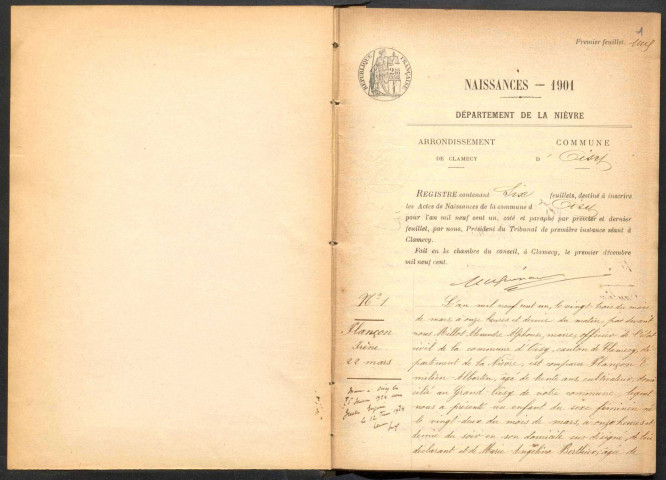 Premier feuillet.
RÉPUBLIQUE FRANÇAISE
NAISSANCES — 1901
DÉPARTEMENT DE LA NIÈVRE
ARRONDISSEMENT
DE CLAMECY
COMMUNE
D'
REGISTRE contenant Six feuillets, destiné à inscrire
les Actes de Naissances de la commune d
pour l'an mil neuf cent un, coté et paraphé par premier et dernier
feuillet, par nous, Président du Tribunal de première instance séant à
Clamecy.
Fait en la chambre du conseil, à Clamecy, le premier décembre
mil neuf cent.
N° 1
Plançon
Irène
22 mars
L'an mil neuf cent un, le vingt trois du mois
de mars, à onze heures et demie du matin, par devant
nous Millot Alexandre Alphonse, maire, officier de l'état
civil de la commune d' canton de Clamecy, dé-
partement de la Nièvre, est comparu Plançon
Albertin, âgé de trente ans, cultivateur, domi-
cilié au Grand de notre commune, lequel
nous a présenté un enfant du sexe féminin né
le vingt deux du mois de mars, à onze heures et
demie du soir en son domicile sus désigné, de lui
déclarant et de Marie Angélina Berthier, âgée de